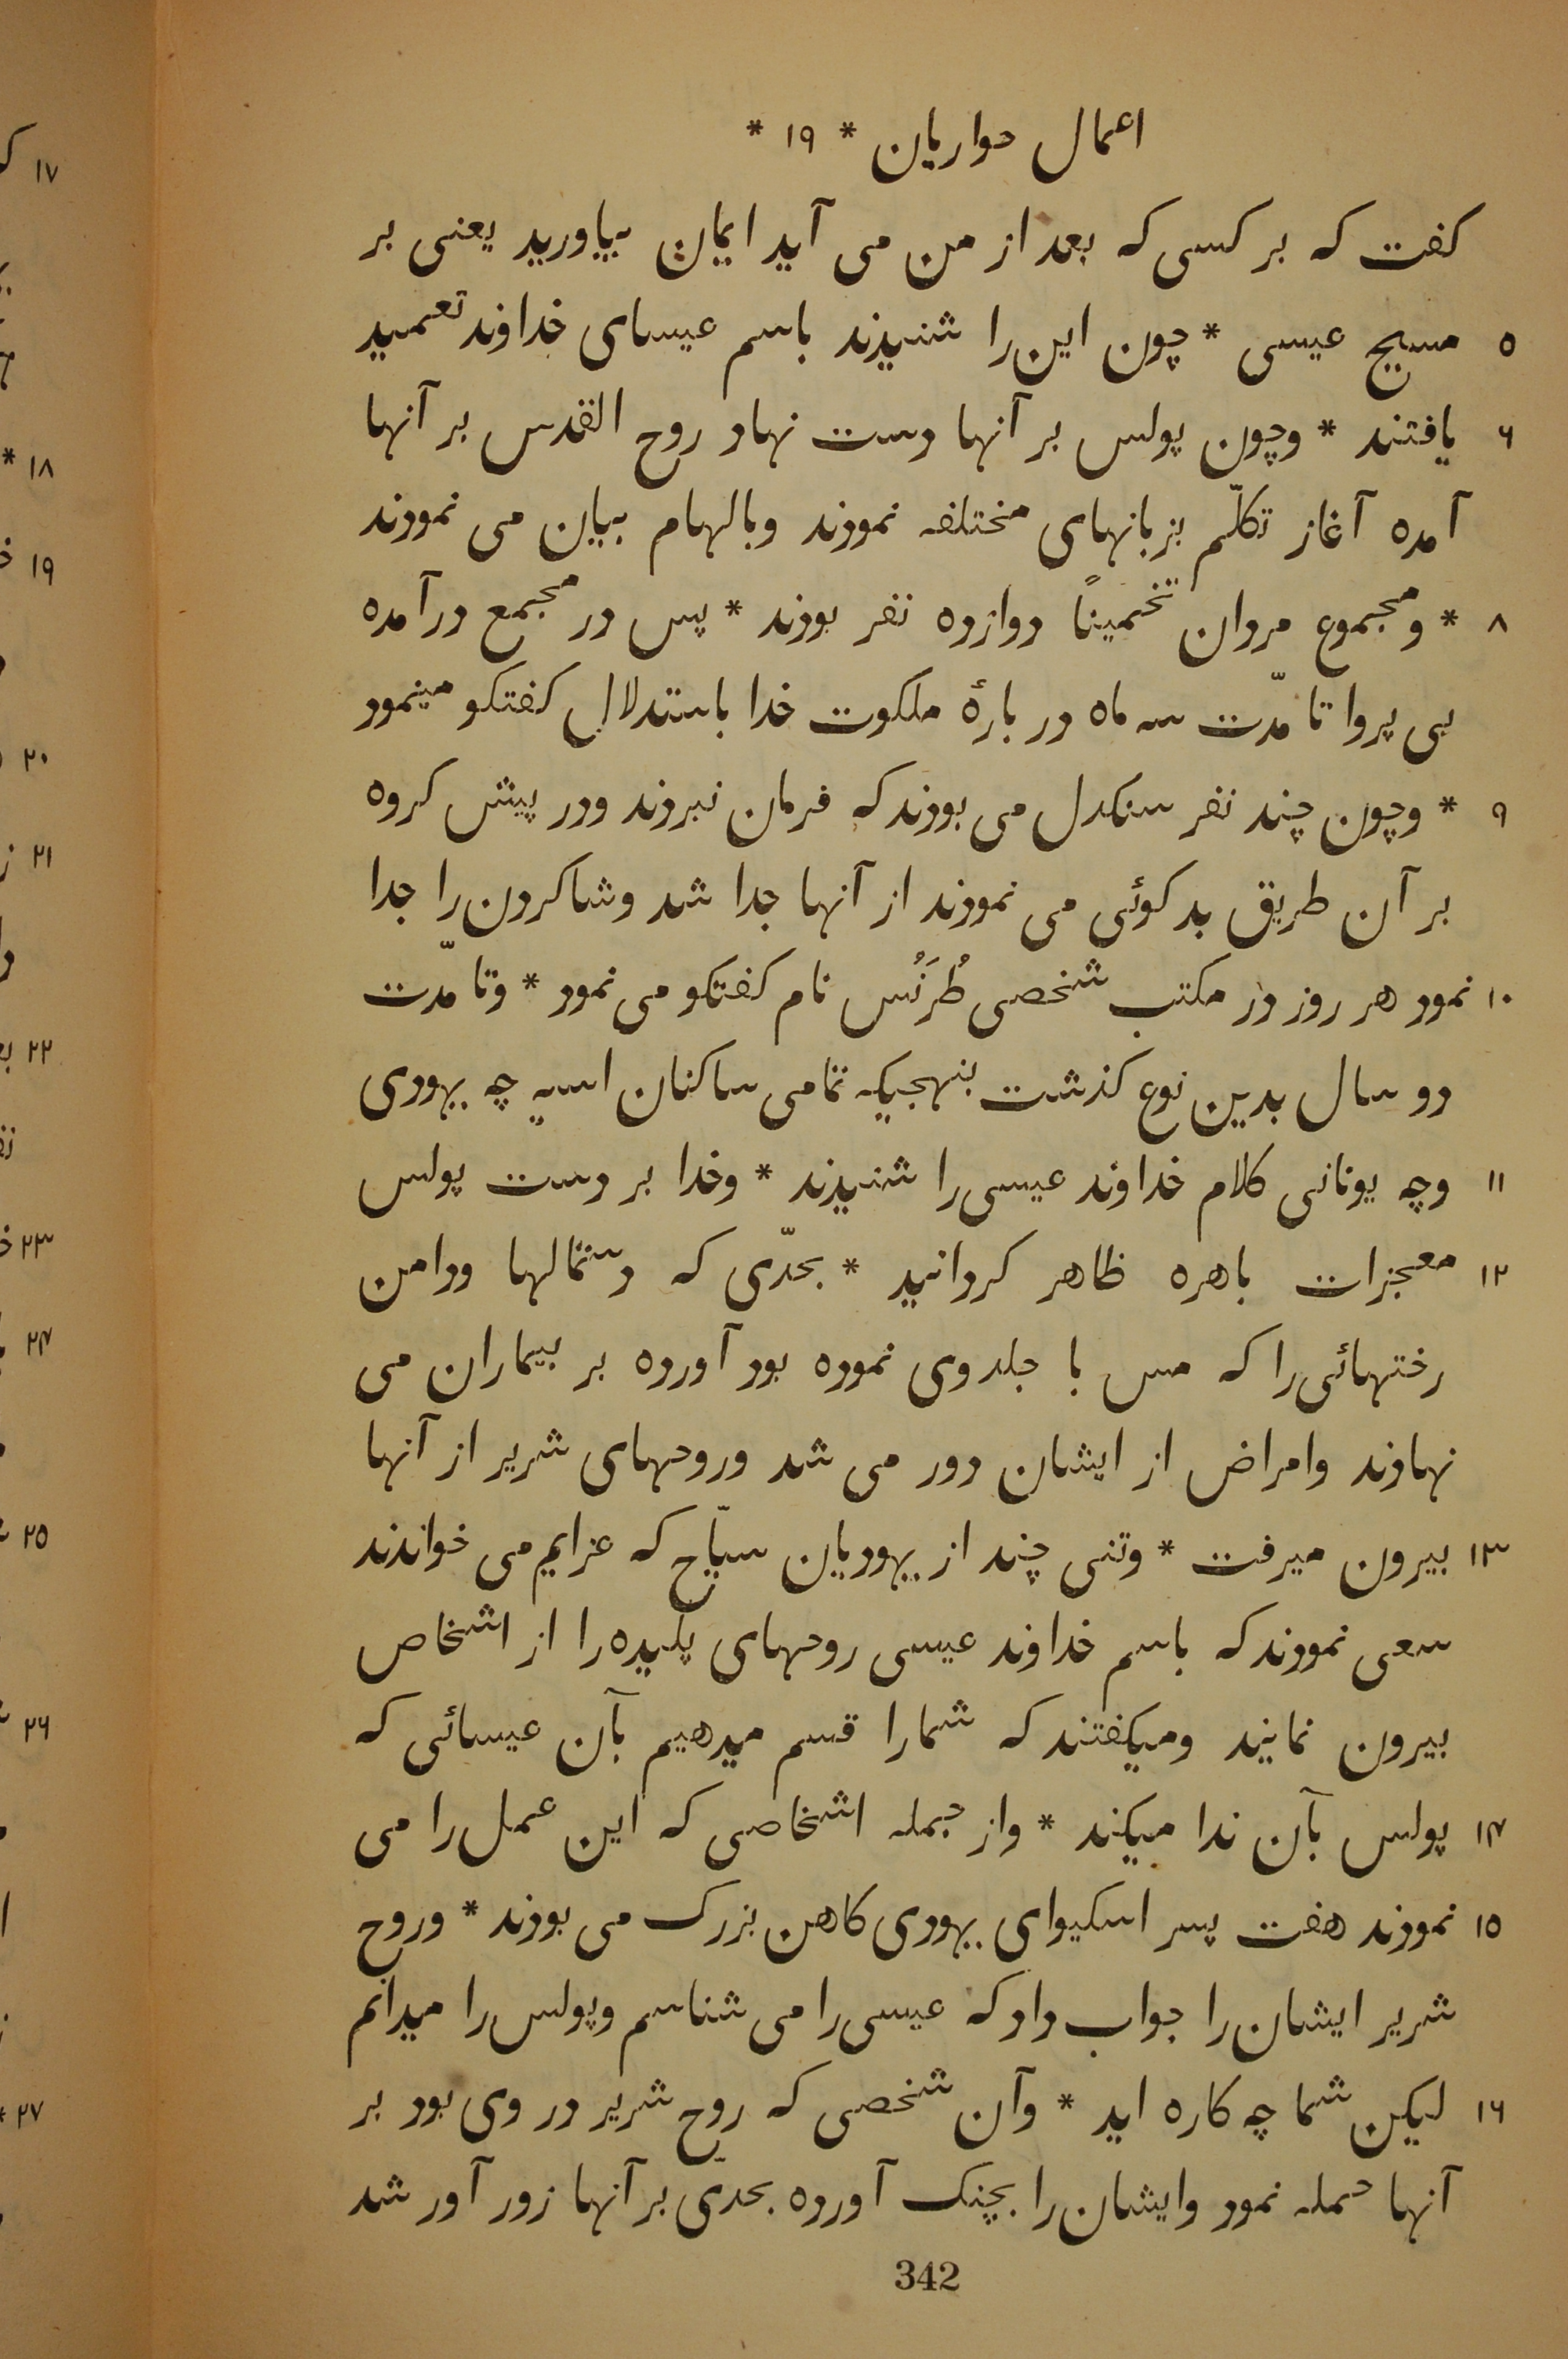 اعمال حواریان * ۱۹ *
کفت که بر کسی که بعد از من می آید ایمان بیاورید یعنی بر
۵ مسیح عیسی * چون این را شنیدند باسم عیسای خداوند تعمید
۶ یافتند * وچون پولس بر آنها دست نهاد روح القدس بر آنها
آمده آغاز تکلّم بزبانهای مختلفه نمودند وبالهام بیان می نمودند
۸ * ومجموع مردان تخمیناً دوازده نفر بودند * پس در مجمع درآمده
بی پروا تا مدّت سه ماه در بارهٔ ملکوت خدا باستدلال کفتکو مینمود
۹ * وچون چند نفر سنکدل می بودند که فرمان نبردند ودر پیش کروه
بر آن طریق بد کوئی می نمودند از آنها جدا شد وشاکردن را جدا
۱۰ نمود هر روز در مکتب شخصی طُرَنُس نام کفتکو می نمود * وتا مدّت
دو سال بدین نوع کذشت بنهجیکه تمامی ساکنان اسیه چه یهودی
۱۱ وچه یونانی کلام خداوند عیسی را شنیدند * وخدا بر دست پولس
۱۲ معجزات باهره ظاهر کردانید * بحدّی که دستمالها ودامن
رختهائی را که مس با جلد وی نموده بود آورده بر بیماران می
نهادند وامراض از ایشان دور می شد وروحهای شریر از آنها
۱۳ بیرون میرفت * وتنی چند از یهودیان سیّاح که عزایم می خواندند
سعی نمودند که باسم خداوند عیسی روحهای پلیده را از اشخاص
بیرون نمایند ومیکفتند که شما را قسم میدهیم بآن عیسائی که
۱۴ پولس بآن ندا میکند * واز جمله اشخاصی که این عمل را می
۱۵ نمودند هفت پسر اسکیوای یهودی کاهن بزرک می بودند * وروح
شریر ایشان را جواب داد که عیسی را می شناسم وپولس را میدانم
۱۶ لیکن شما چه کاره اید * وآن شخصی که روح شریر در وی بود بر
آنها حمله نمود وایشان را بچنک آورده بحدّی بر آنها زور آور شد
342
۱۷
۱۸ *
۱۹
۲۰
۲۱
۲۲
۲۳
۲۴
۲۵
۲۶
۲۷